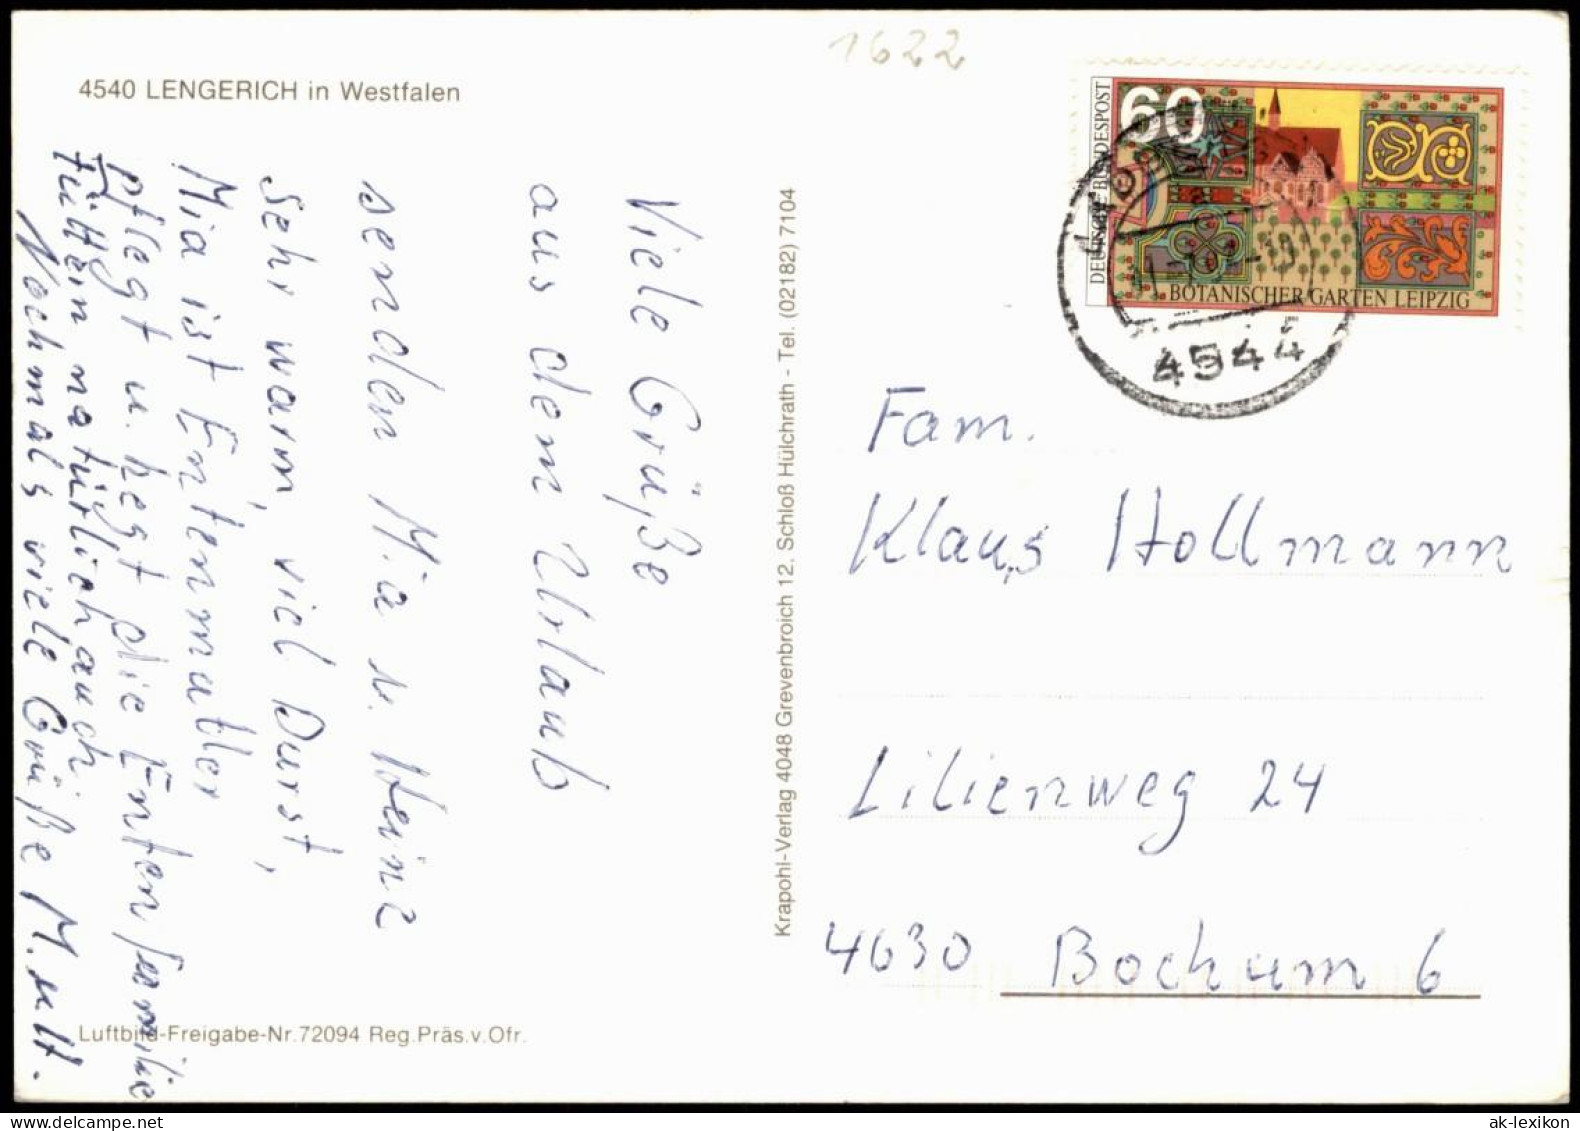 1622
4540 LENGERICH in Westfalen
DEUTSCHE BUNDESPOST
60
BOTANISCHER GARTEN LEIPZIG
4544
Viele Grüße
aus dem Urlaub
senden Mia u. Heinz
Sehr warm, viel Durst,
Mia ist Entenmutter
pflegt u. hegt die Entenfamilie
Füttern natürlich auch.
Nochmals viele Grüße M. u. H.
Krapohl-Verlag 4048 Grevenbroich 12. Schloß Hülchrath - Tel. (02182) 7104
Fam.
Klaus Hollmann
Lilienweg 24
4630 Bochum 6
Luftbild-Freigabe-Nr. 72094 Reg. Präs. v. Ofr.
ak-lexikon